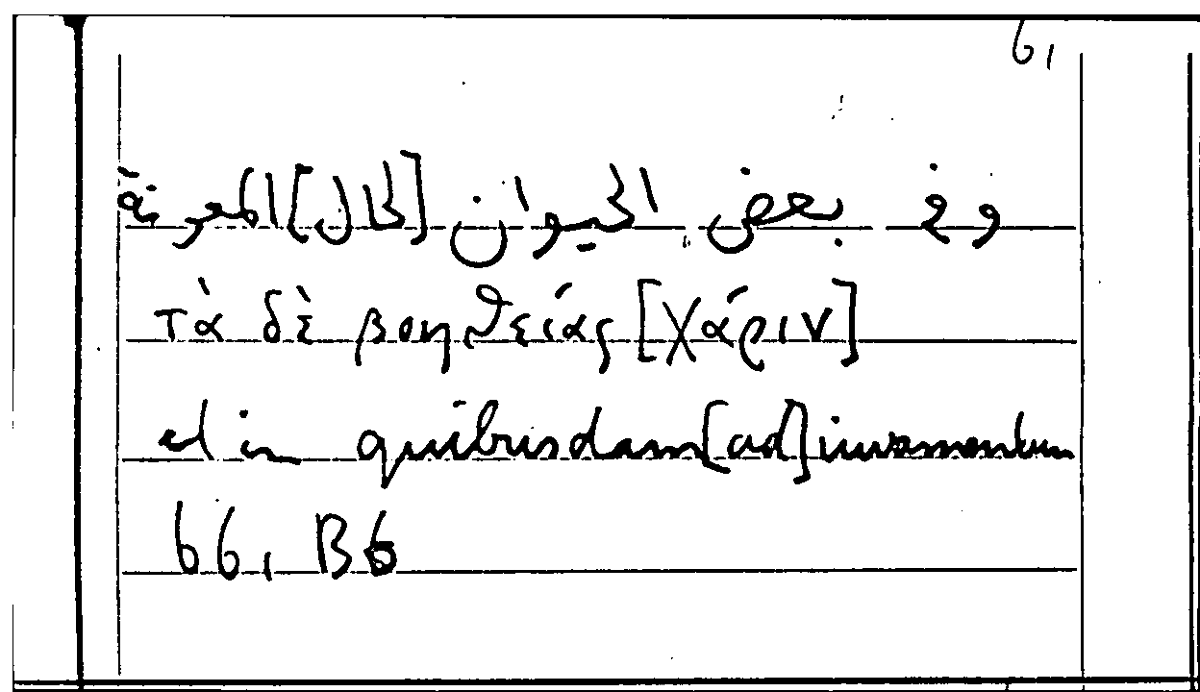 6,
وفي بعض الحيوان [لحال] المعونة
τὰ δὲ βοηθείας [χάριν]
et in quibusdam [ad] iuvamentum
66, B6